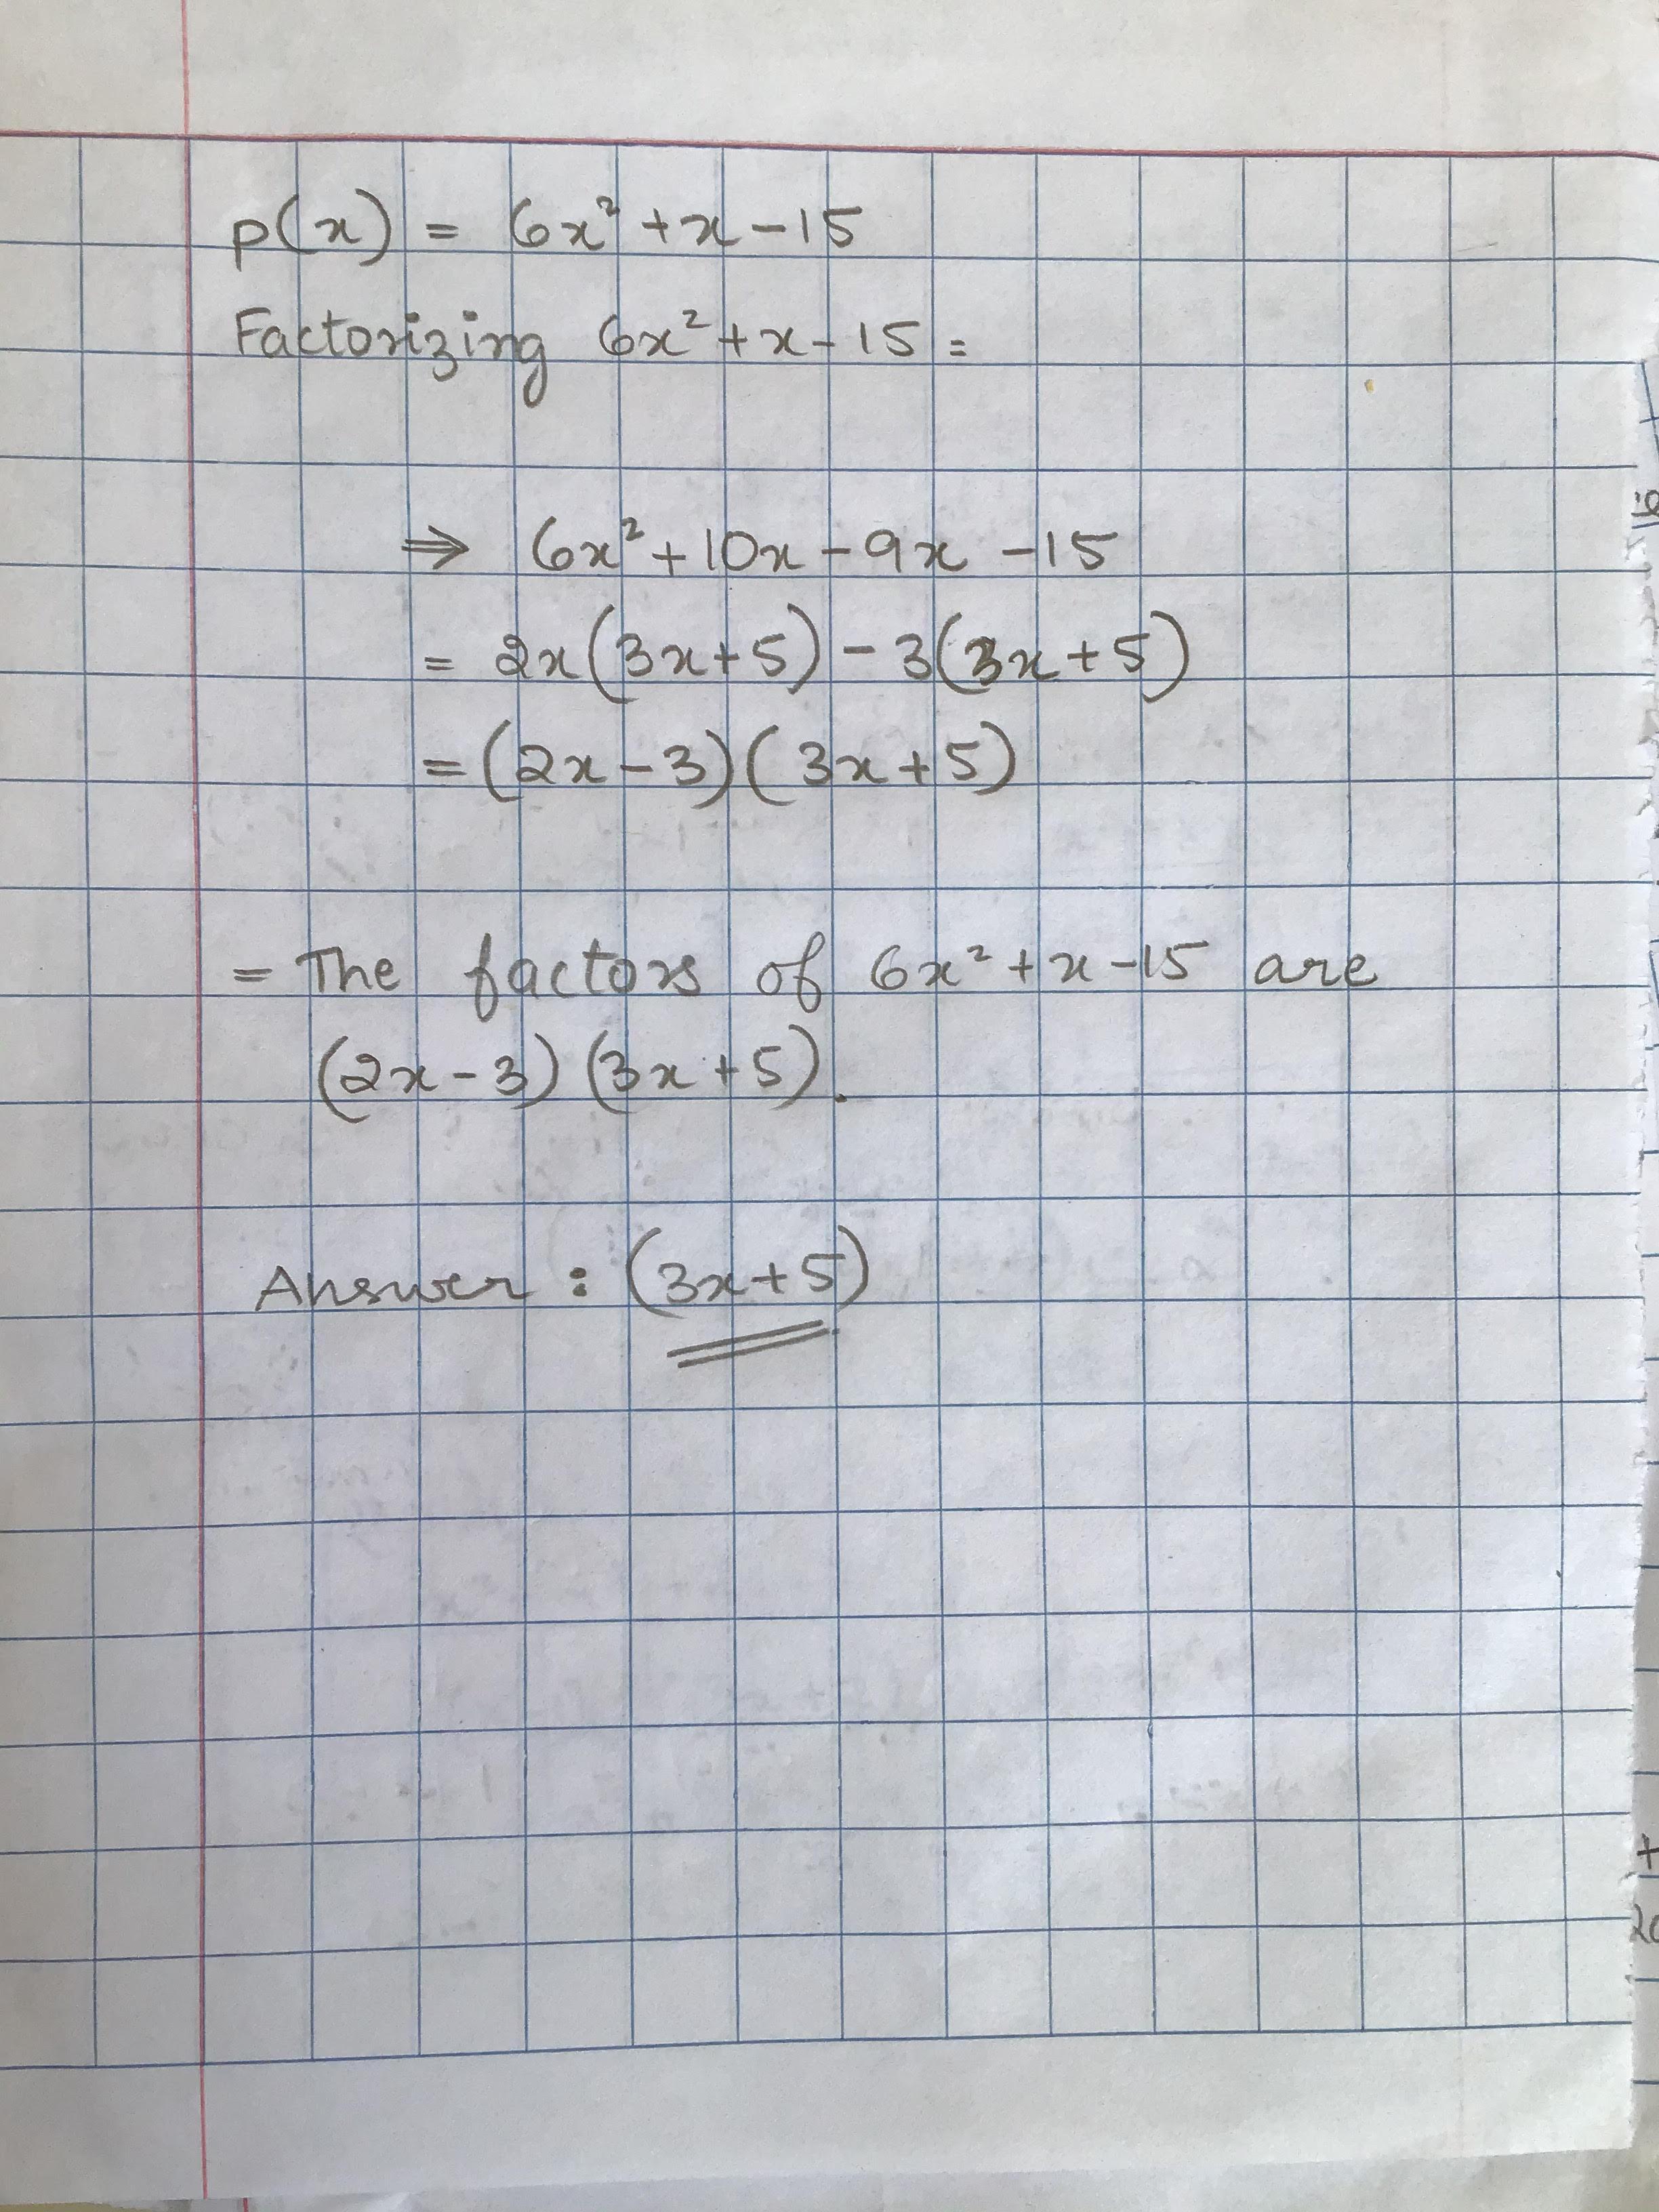 p(x) = 6x² + x - 15
Factorizing 6x² + x - 15 =
⇒ 6x² + 10x - 9x - 15
= 2x(3x+5) - 3(3x+5)
= (2x-3)(3x+5)
= The factors of 6x² + x - 15 are
(2x-3) (3x+5).
Answer : (3x+5)